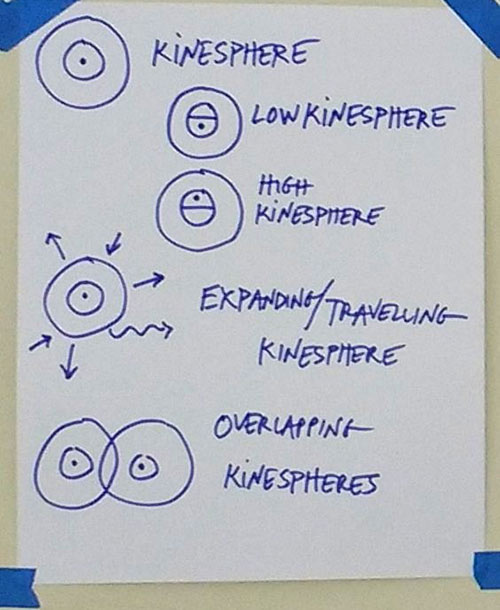 KINESPHERE
LOW KINESPHERE
HIGH
KINESPHERE
EXPANDING/TRAVELLING
KINESPHERE
OVERLAPPING
KINESPHERES